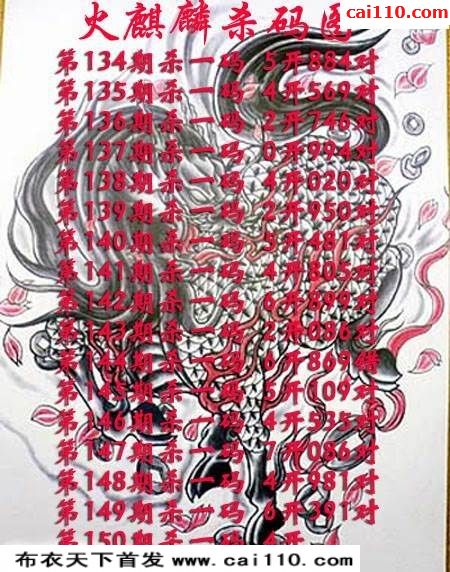 cai110.com
火麒麟杀码
第134期杀一码 5开884对
第135期杀一码 4开569对
第136期杀一码 2开746对
第137期杀一码 0开994对
第138期杀一码 4开020对
第139期杀一码 2开950对
第140期杀一码 5开481对
第141期杀一码 4开805对
第142期杀一码 6开899对
第143期杀一码 2开086对
第144期杀一码 6开869错
第145期杀一码 5开109对
第146期杀一码 4开535对
第147期杀一码 7开086对
第148期杀一码 4开981对
第149期杀一码 6开391对
第150期杀一码 4开
布衣天下首发 www.cai110.com